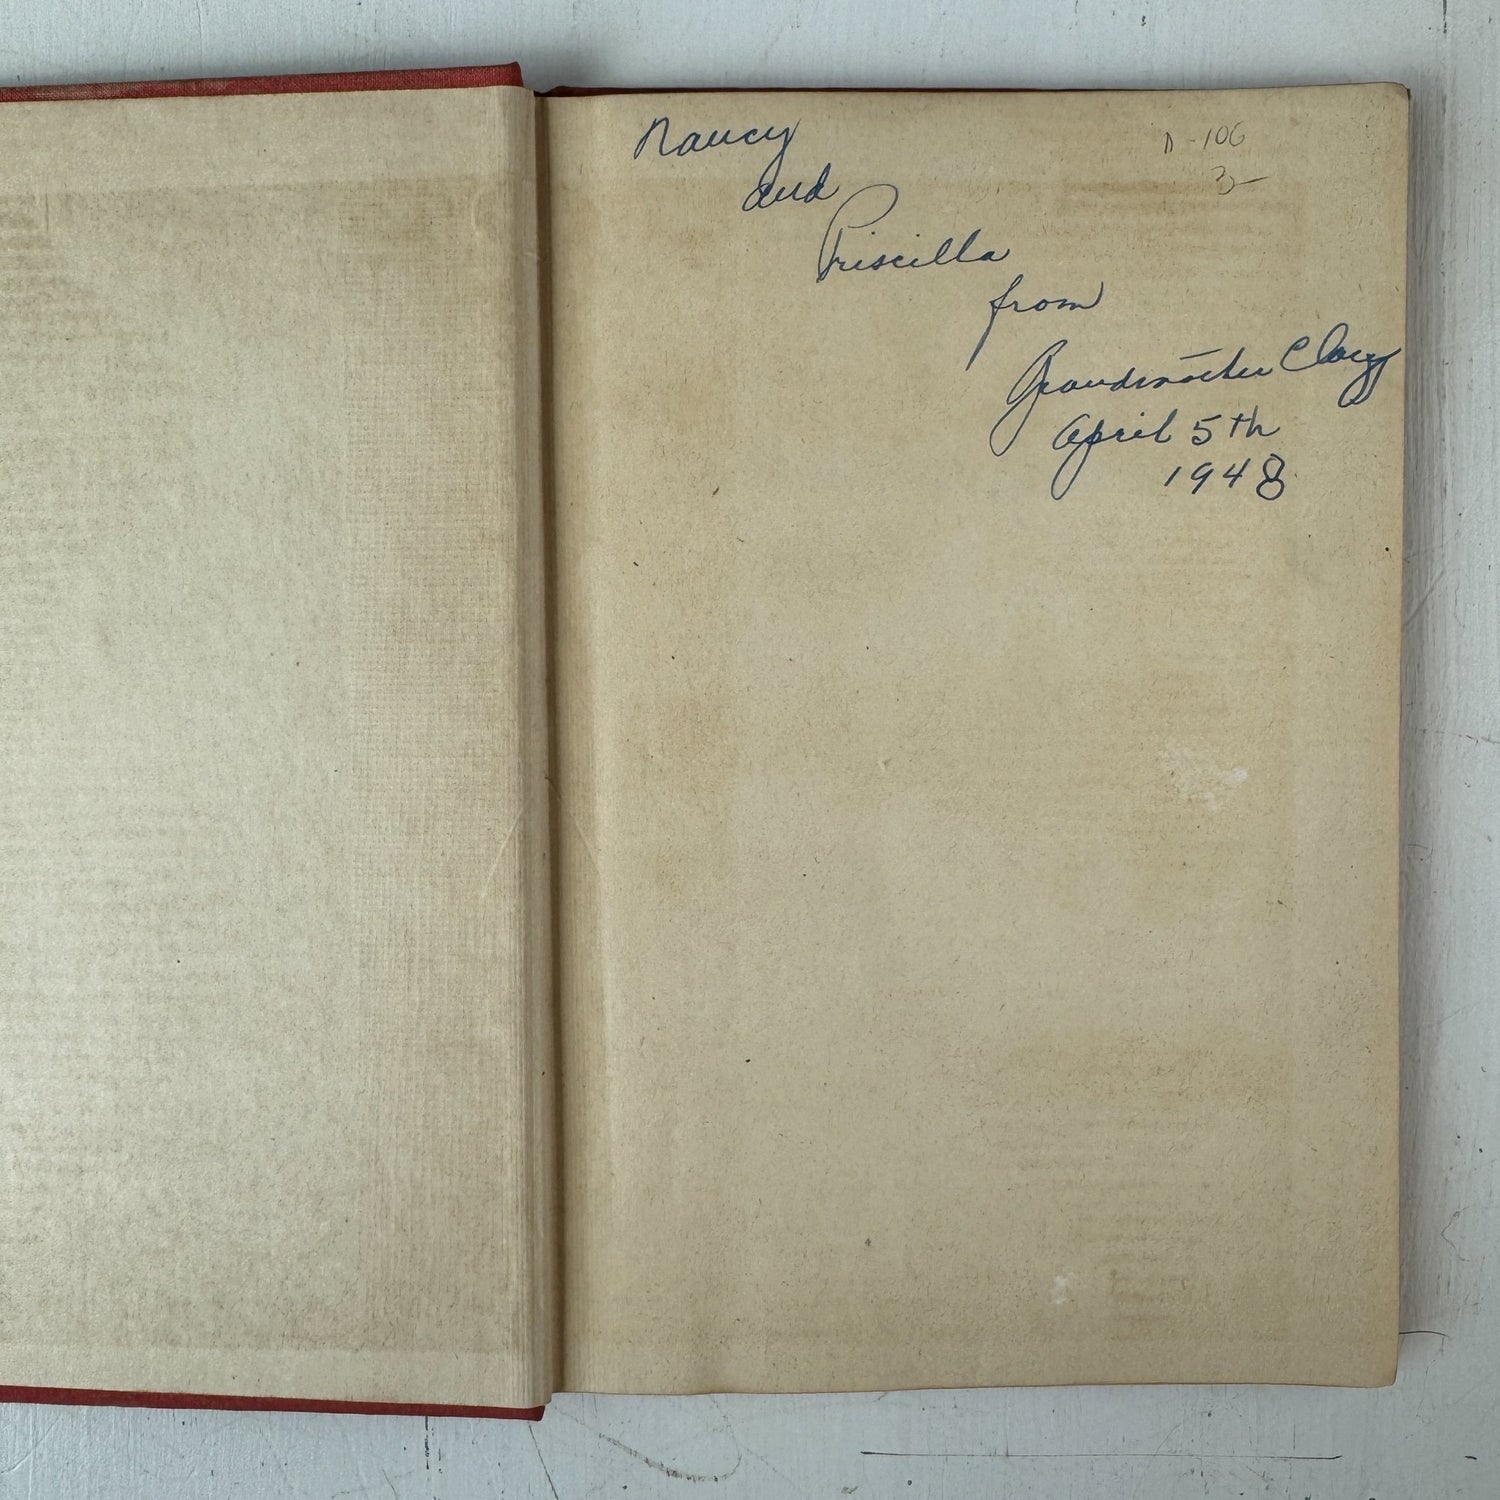 Nancy
and
Priscilla
from
Grandmother Clary
April 5th
1948
D-106
3-